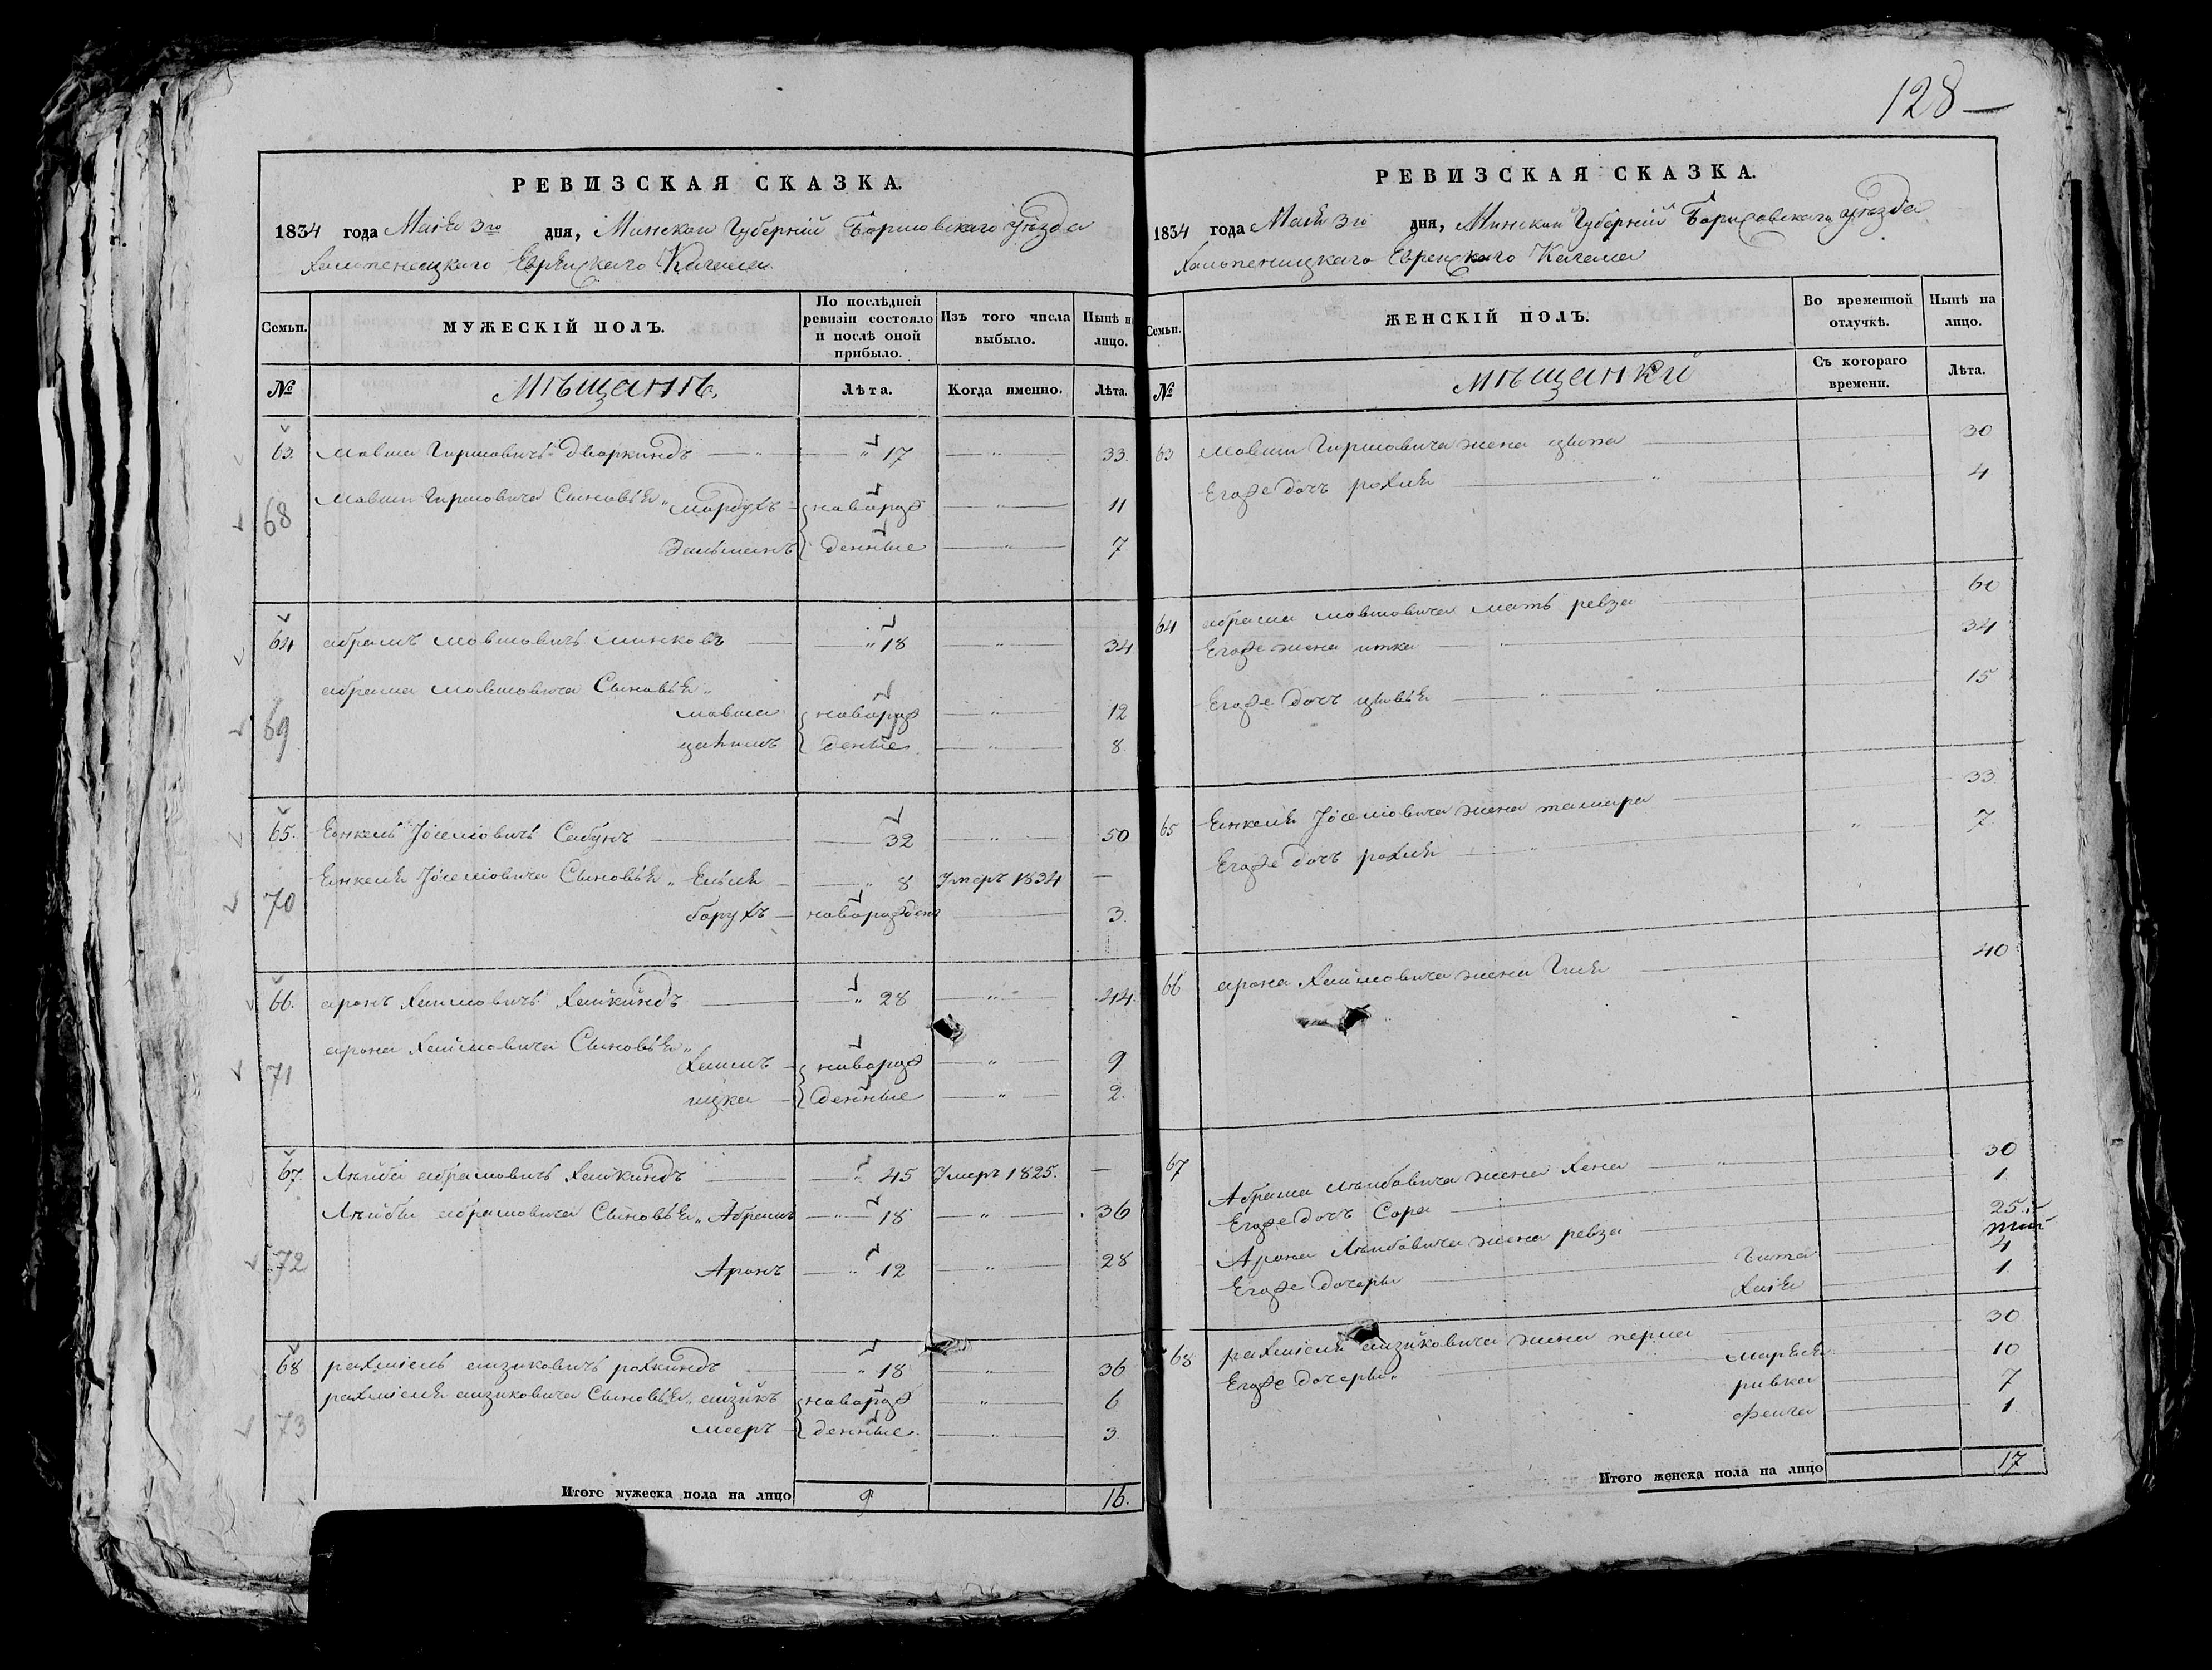 128
РЕВИЗСКАЯ СКАЗКА.
1834 года Маія 3го дня, Минской Губерніи Борисовскаго уѣзда
Холопеницкаго Еврейскаго Кагала
Семьи. МУЖЕСКІЙ ПОЛЪ. По послѣдней ревизіи состояло и послѣ оной прибыло. Изъ того числа выбыло. Нынѣ на лицо.
№ Мѣщанъ. Лѣта. Когда именно. Лѣта.
63. Мовша Гиршовичъ Дворкиндъ 17 33.
68 Мовши Гиршовича Сыновья Мордухъ новорож 11
Зельманъ денные 7
64 абрамъ мовшовичъ минковъ 18 34
абрама мовшовича Сыновья
69 мовша новорож 12
денные 8
65. Янкель Іоселіовичъ Сабунъ 32 50
Янкеля Іоселіовича Сыновья 8 Умеръ 1834
70 борухъ новорожден 3.
66. аронъ хаимовичъ хайкиндъ 28 44.
арона хаимовича Сыновья
71 хаимъ новорож 9
ицка денные 2.
67. Лейба абрамовичъ хайкиндъ 45 Умеръ 1825.
Лейбы абрамовича Сыновья Абрамъ 18 36
72 Аронъ 12 28
68 рахміель аизиковичъ рохкиндъ 18 36
рахміеля аизиковича Сыновья айзикъ новорож 6
73 мееръ денные 3
Итого мужеска пола на лицо 9 16.
РЕВИЗСКАЯ СКАЗКА.
1834 года Маія 3го дня, Минской Губерніи Борисовскаго уѣзда
Холопеницкаго Еврейскаго Кагала
Семьи. ЖЕНСКІЙ ПОЛЪ. Во временной отлучкѣ. Нынѣ на лицо.
№ мѣщанки Съ котораго времени. Лѣта.
63 мовши Гиршовича жена 30
Егоже дочь рохля 4
64 абрама мовшовича мать ревза 60
Егоже жена итка 34
Егоже дочь цивья 15
65 Янкеля Іоселіовича жена тамара 33
Егоже дочь рохля 7
66 арона хаимовича жена Гися 40
67 Абрама Лейбовича жена хена 30
Егоже дочь Сора 1
Арона Лейбовича жена ревза 25
Егоже дочери Гита 4
хая 1
68 рахміеля аизиковича жена перла 30
Егоже дочери марьяся 10
ривка 7
фейга 1
Итого женска пола на лицо 17